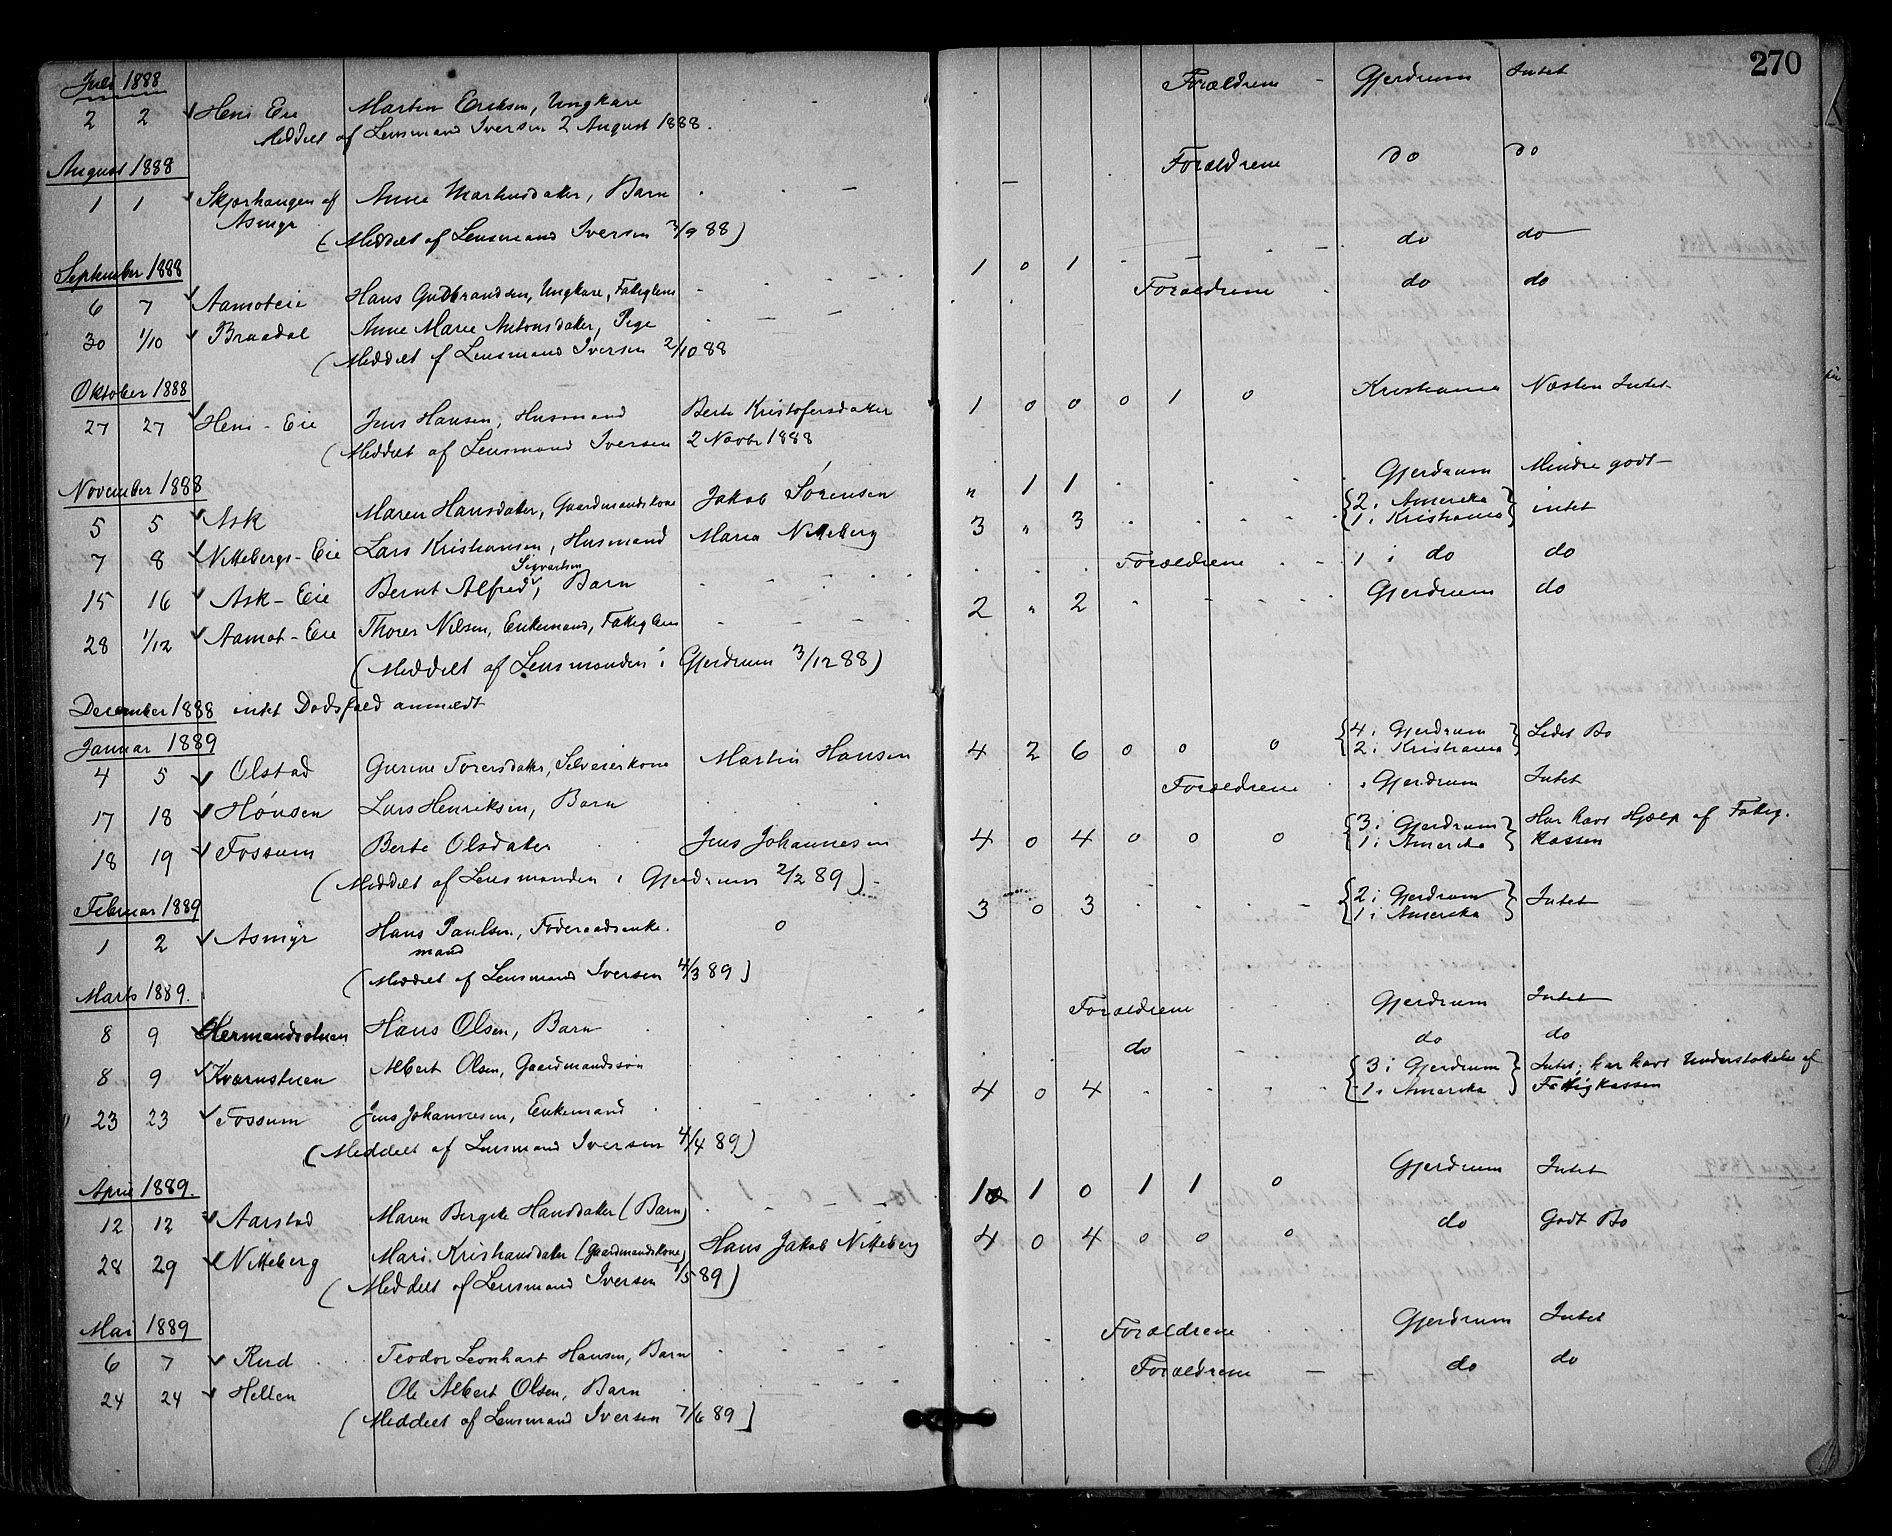 270
Juli 1888
2 2 Heni Eie Martin Eriksen, Ungkare Forældrene - Gjerdrum Intet
Meddelt af Lensmand Iversen 2 August 1888.
August 1888
1 1 Skjærhaugen af Anne Martinsdatter, Barn . - - Forældrene do do
Asmyr
(Meddelt af Lensmand Iversen 3/9 88)
September 1888
6 7 Aamoteie Hans Gudbrandsen, Ungkare, Fattiglem - 1 0 1 - - - do do
30 1/10 Braadal Anne Marie Antonsdatter, Pige Forældrene do do
(Meddelt af Lensmand Iversen 2/10 88
Oktober 1888
27 27 Heni - Eie Jens Hansen, Husmand Berte Kristofersdatter 1 0 0 0 1 0 Kristiania Næsten Intet
(Meddelt af Lensmand Iversen 2 Novbr 1888
November 1888
5 5 Ask Maren Hansdatter, Gaardmandskone Jakob Sørensen " 1 1 . . . Gjerdrum Mindre godt
7 8 Nittebergs-Eie Lars Kristiansen, Husmand Maria Nitteberg 3 " 3 - - - {2 i Amerika 1 i Kristiania} intet
Sigvartsen
15 16 Ask - Eie Bernt Alfred, Barn Forældrene - - 1 i do do
28 1/12 Aamot - Eie Thorer Nilsen, Enkemand, Fattiglem 2 " 2 - - - Gjerdrum do
(Meddelt af Lensmanden i Gjerdrum 3/12 88)
December 1888 intet Dødsfald anmeldt
Januar 1889
4 5 Olstad Gurine Torersdatter, Selveierkone Martin Hansen 4 2 6 0 0 0 {4 i Gjerdrum 2 i Kristiania} Lidet Bo
17 18 Hønsen Lars Henriksen, Barn Forældrene Gjerdrum Intet
18 19 Fossum Berte Olsdatter Jens Johannesen 4 0 4 0 0 0 {3 i Gjerdrum 1 i Amerika} Har havt Hjælp af Fattig.
kassen
(Meddelt af Lensmanden i Gjerdrum 2/2 89)
Februar 1889
1 2 Asmyr Hans Paulsen, Føderaadsenke- 0 3 0 3 {2 i Gjerdrum 1 i Amerika} Intet
mand
(Meddelt af Lensmand Iversen 4/3 89)
Marts 1889.
8 9 Hermandsstuen Hans Olsen, Barn Forældrene Gjerdrum Intet
8 9 Kværnstuen Albert Olsen, Gaardmandssøn do do do
23 23 Fossum Jens Johannesen, Enkemand 4 0 4 {3 i Gjerdrum 1 i Amerika} Intet, har havt Understøttelse af
Fattigkassen
(Meddelt af Lensmand Iversen 4/4 89)
April 1889.
12 12 Aarstad Maren Bergite Hansdatter (Barn) 1 1 0 1 1 0 Gjerdrum Intet
28 29 Nitteberg Mari Kristiansdatter (Gaardmandskone) Hans Jakob Nitteberg 4 0 4 0 0 0 do Godt Bo
(Meddelt af Lensmand Iversen 1/5 89)
Mai 1889
6 7 Rud Teodor Leonhart Hansen, Barn Forældrene Gjerdrum Intet
24 24 Hellen Ole Albert Olsen, Barn Forældrene - do do
(Meddelt af Lensmand Iversen 7/6 89)